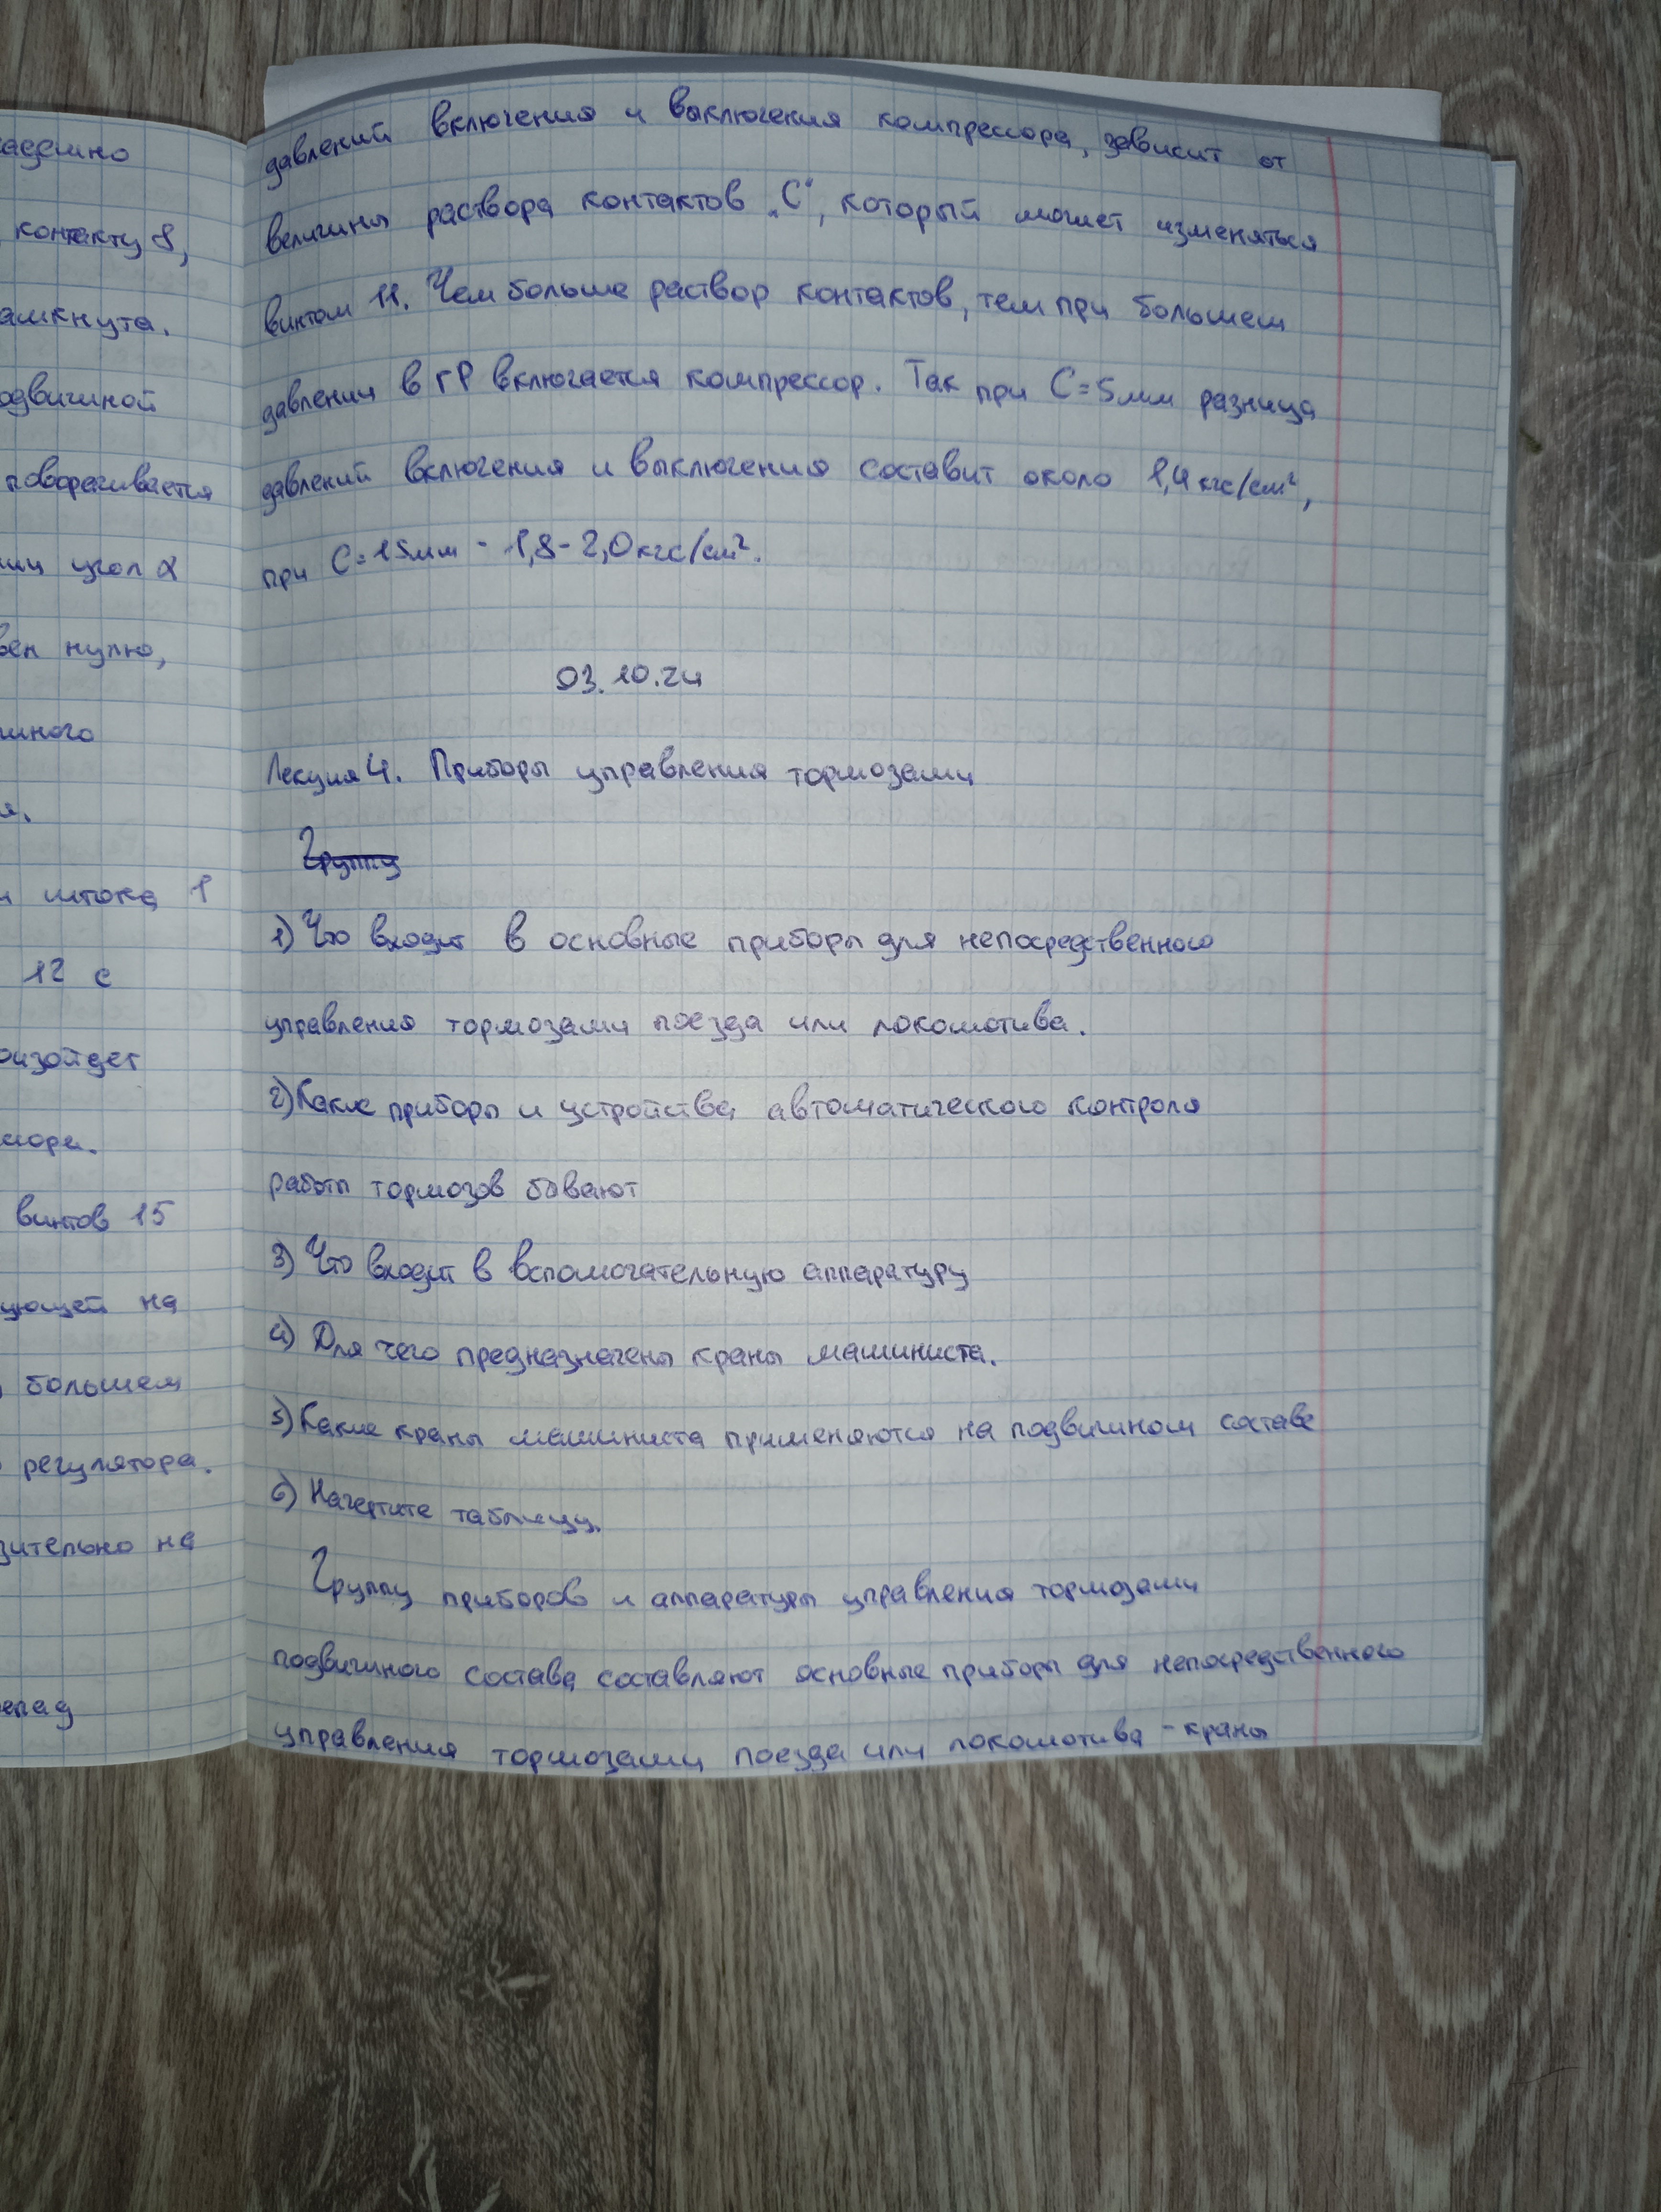 аедежно
контакту 8,
амкнута.
одвижной
поворачивается
угол α
вен нулю,
жного
я.
и штока 1
12 с
оизойдет
ссора.
винтов 15
ующей на
большем
регулятора.
зительно на
епад
давлений включения и выключения компрессора, зависит от
величины раствора контактов „С“, который может изменяться
винтом 11. Чем больше раствор контактов, тем при большем
давлении в ГР включается компрессор. Так при С=5мм разница
давлений включения и выключения составит около 1,4 кгс/см²,
при С=15мм - 1,8-2,0кгс/см².
03.10.24
Лекция 4. Приборы управления тормозами
Группу
1) Что входит в основные приборы для непосредственного
управления тормозами поезда или локомотива.
2) Какие приборы и устройства автоматического контроля
работы тормозов бывают
3) Что входит в вспомогательную аппаратуру
4) Для чего предназначены краны машиниста.
5) Какие краны машиниста применяются на подвижном составе
6) Начертите таблицу.
Группу приборов и аппаратуры управления тормозами
подвижного состава составляют основные приборы для непосредственного
управления тормозами поезда или локомотива - краны